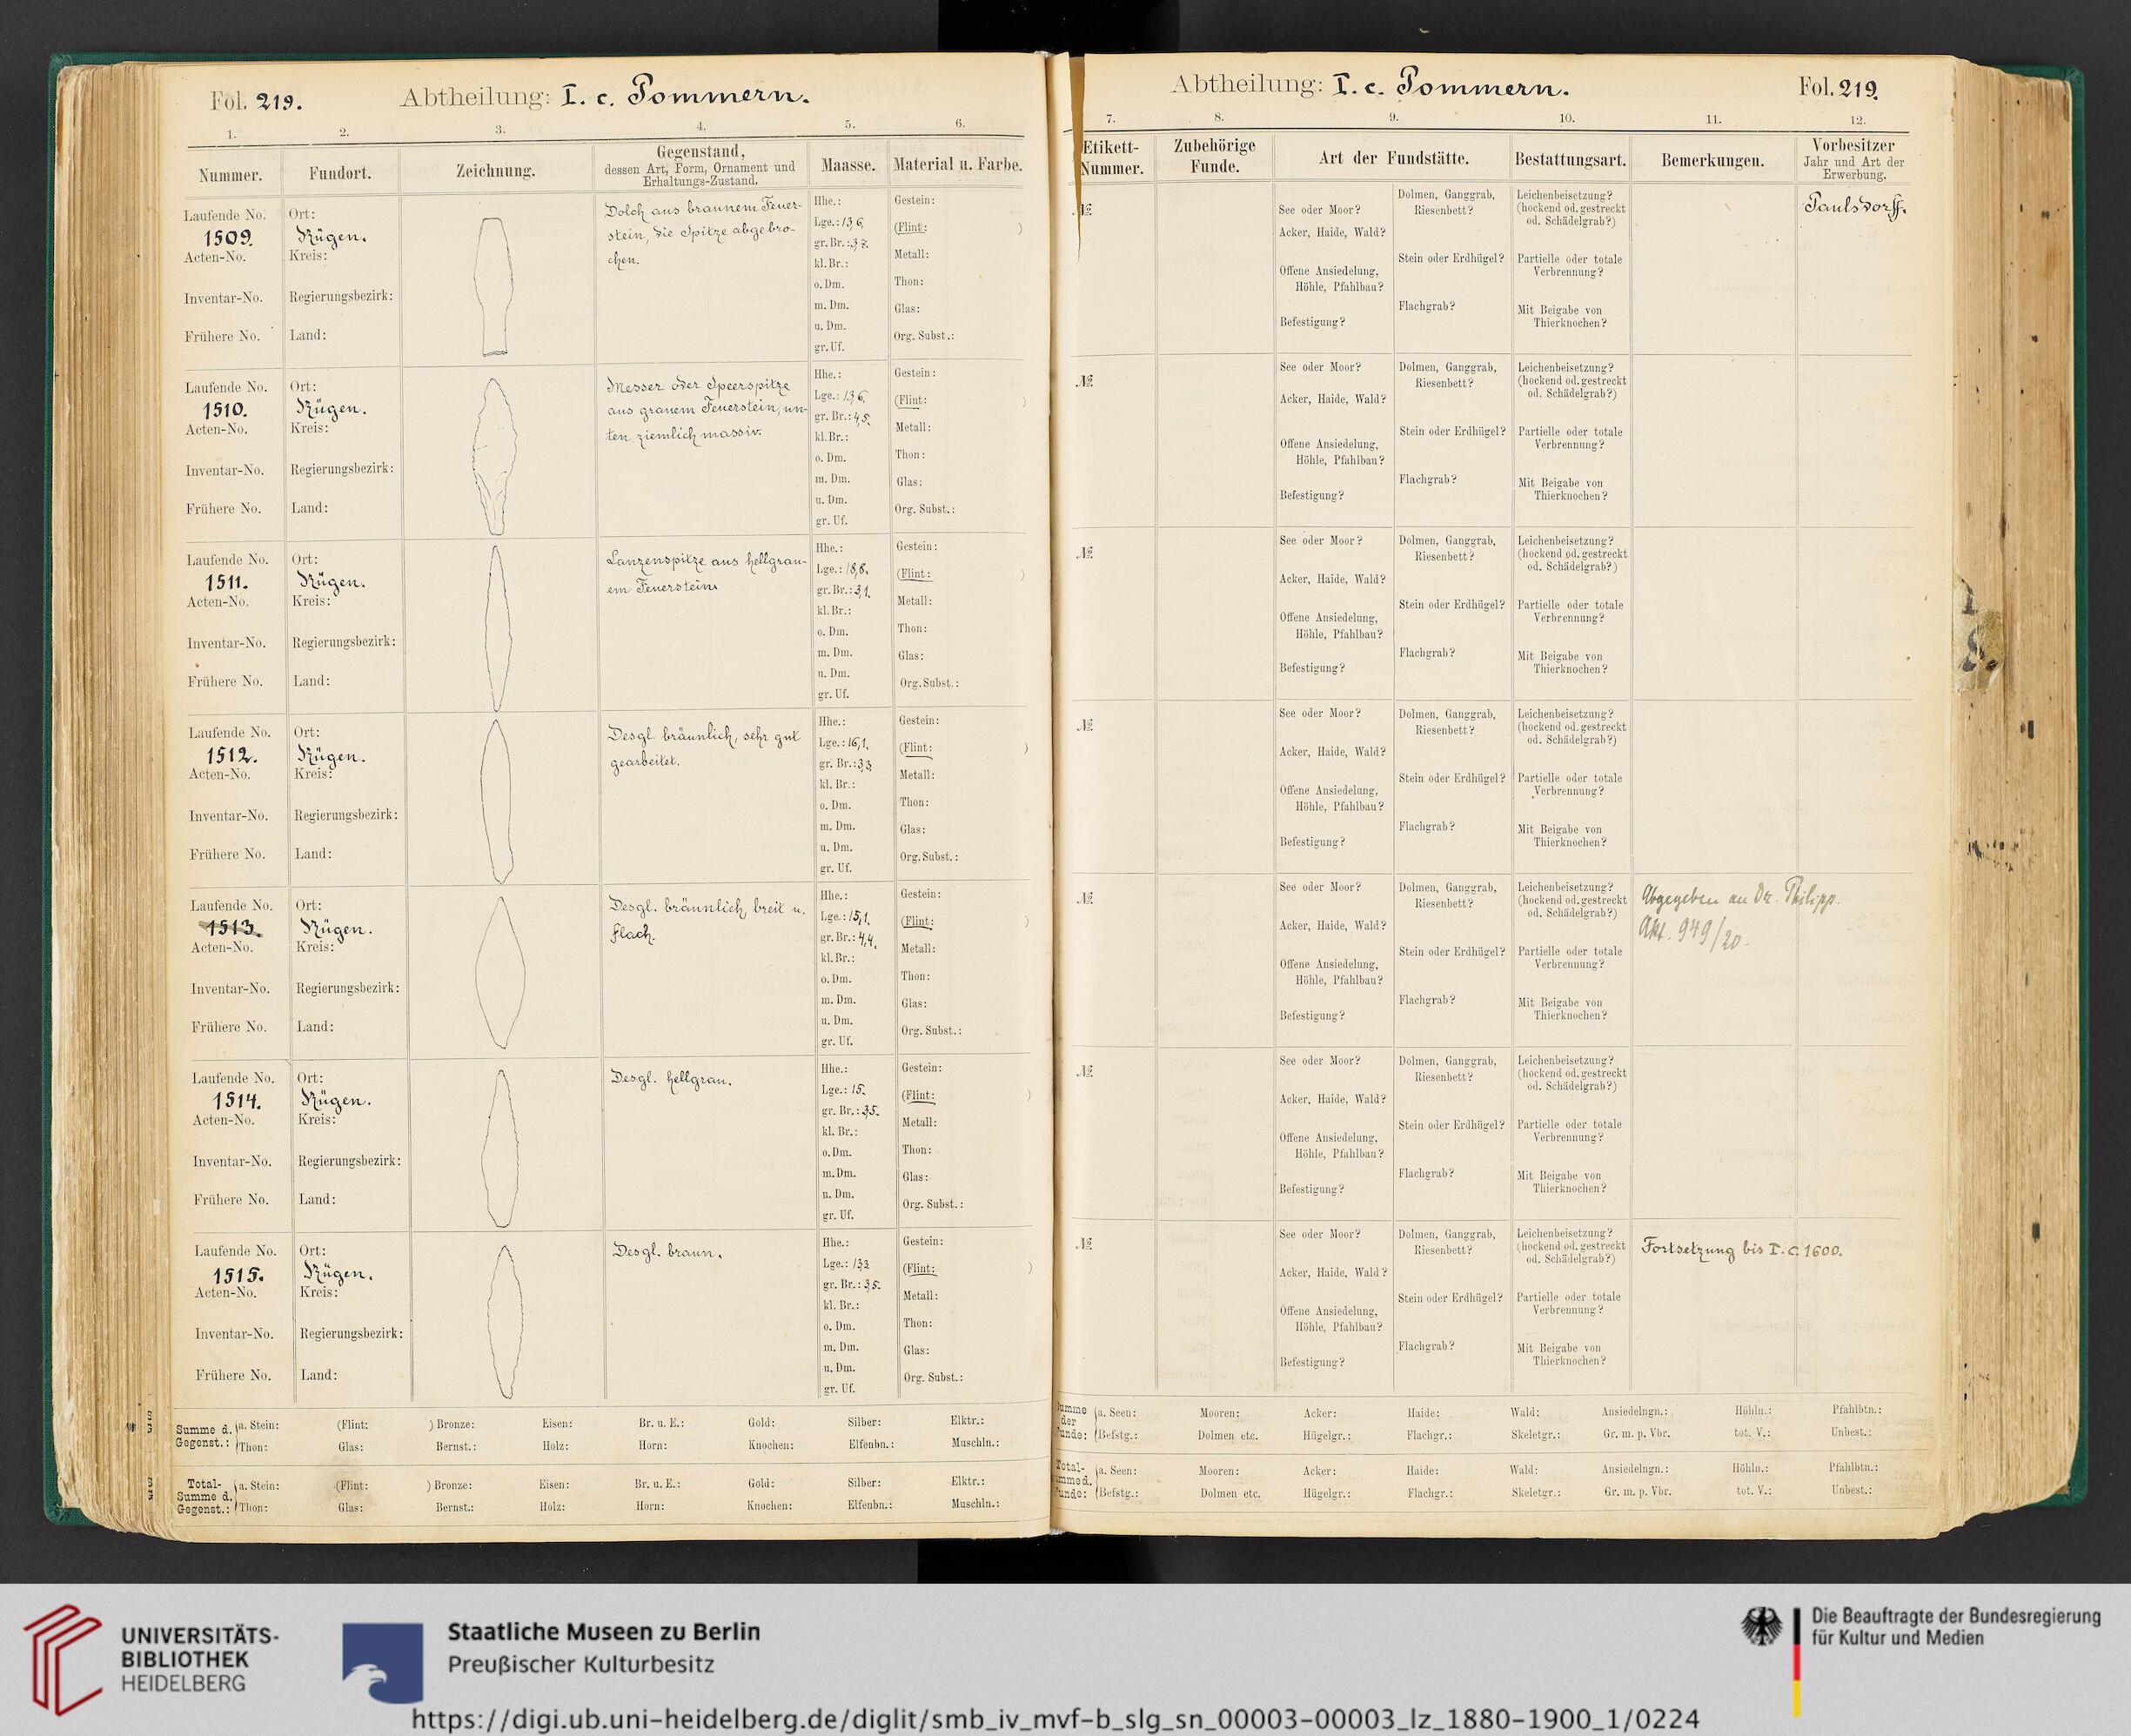 Fol. 219.
Abtheilung: I. c. Pommern.
1. 2. 3. 4. 5. 6.
Nummer. Fundort. Zeichnung. Gegenstand, dessen Art, Form, Ornament und Erhaltungs-Zustand. Maasse. Material u. Farbe.
Laufende No. 1509. Acten-No. Inventar-No. Frühere No.
Ort: Rügen. Kreis: Regierungsbezirk: Land:
Dolch aus braunem Feuer-
stein, die Spitze abgebro-
chen.
Hhe.: Lge.: 13,6. gr. Br.: 3,7. kl. Br.: o. Dm. m. Dm. u. Dm. gr. Uf.
Gestein: (Flint: ) Metall: Thon: Glas: Org. Subst.:
Laufende No. 1510. Acten-No. Inventar-No. Frühere No.
Ort: Rügen. Kreis: Regierungsbezirk: Land:
Messer oder Speerspitze
aus grauem Feuerstein, un-
ten ziemlich massiv.
Hhe.: Lge.: 13,6. gr. Br.: 4,5. kl. Br.: o. Dm. m. Dm. u. Dm. gr. Uf.
Gestein: (Flint: ) Metall: Thon: Glas: Org. Subst.:
Laufende No. 1511. Acten-No. Inventar-No. Frühere No.
Ort: Rügen. Kreis: Regierungsbezirk: Land:
Lanzenspitze aus hellgrau-
em Feuerstein.
Hhe.: Lge.: 18,8. gr. Br.: 3,1. kl. Br.: o. Dm. m. Dm. u. Dm. gr. Uf.
Gestein: (Flint: ) Metall: Thon: Glas: Org. Subst.:
Laufende No. 1512. Acten-No. Inventar-No. Frühere No.
Ort: Rügen. Kreis: Regierungsbezirk: Land:
Desgl. bräunlich, sehr gut
gearbeitet.
Hhe.: Lge.: 16,1. gr. Br.: 3,3. kl. Br.: o. Dm. m. Dm. u. Dm. gr. Uf.
Gestein: (Flint: ) Metall: Thon: Glas: Org. Subst.:
Laufende No. 1513. Acten-No. Inventar-No. Frühere No.
Ort: Rügen. Kreis: Regierungsbezirk: Land:
Desgl. bräunlich, breit u.
flach.
Hhe.: Lge.: 15,1. gr. Br.: 4,4. kl. Br.: o. Dm. m. Dm. u. Dm. gr. Uf.
Gestein: (Flint: ) Metall: Thon: Glas: Org. Subst.:
Laufende No. 1514. Acten-No. Inventar-No. Frühere No.
Ort: Rügen. Kreis: Regierungsbezirk: Land:
Desgl. hellgrau.
Hhe.: Lge.: 15. gr. Br.: 3,5. kl. Br.: o. Dm. m. Dm. u. Dm. gr. Uf.
Gestein: (Flint: ) Metall: Thon: Glas: Org. Subst.:
Laufende No. 1515. Acten-No. Inventar-No. Frühere No.
Ort: Rügen. Kreis: Regierungsbezirk: Land:
Desgl. braun.
Hhe.: Lge.: 13,3 gr. Br.: 3,5. kl. Br.: o. Dm. m. Dm. u. Dm. gr. Uf.
Gestein: (Flint: ) Metall: Thon: Glas: Org. Subst.:
Summe d. Gegenst.: a. Stein: (Flint: ) Bronze: Eisen: Br. u. E.: Gold: Silber: Elktr.:
Thon: Glas: Bernst.: Holz: Horn: Knochen: Elfenbn.: Muschln.:
Total-Summe d. Gegenst.: a. Stein: (Flint: ) Bronze: Eisen: Br. u. E.: Gold: Silber: Elktr.:
Thon: Glas: Bernst.: Holz: Horn: Knochen: Elfenbn.: Muschln.:
Abtheilung: I. c. Pommern.
Fol. 219.
7. 8. 9. 10. 11. 12.
Etikett-Nummer. Zubehörige Funde. Art der Fundstätte. Bestattungsart. Bemerkungen. Vorbesitzer Jahr und Art der Erwerbung.
№ See oder Moor? Acker, Haide, Wald? Offene Ansiedelung, Höhle, Pfahlbau? Befestigung?
Dolmen, Ganggrab, Riesenbett? Stein oder Erdhügel? Flachgrab?
Leichenbeisetzung? (hockend od. gestreckt od. Schädelgrab?) Partielle oder totale Verbrennung? Mit Beigabe von Thierknochen?
Paulsdorff.
№ See oder Moor? Acker, Haide, Wald? Offene Ansiedelung, Höhle, Pfahlbau? Befestigung?
Dolmen, Ganggrab, Riesenbett? Stein oder Erdhügel? Flachgrab?
Leichenbeisetzung? (hockend od. gestreckt od. Schädelgrab?) Partielle oder totale Verbrennung? Mit Beigabe von Thierknochen?
№ See oder Moor? Acker, Haide, Wald? Offene Ansiedelung, Höhle, Pfahlbau? Befestigung?
Dolmen, Ganggrab, Riesenbett? Stein oder Erdhügel? Flachgrab?
Leichenbeisetzung? (hockend od. gestreckt od. Schädelgrab?) Partielle oder totale Verbrennung? Mit Beigabe von Thierknochen?
№ See oder Moor? Acker, Haide, Wald? Offene Ansiedelung, Höhle, Pfahlbau? Befestigung?
Dolmen, Ganggrab, Riesenbett? Stein oder Erdhügel? Flachgrab?
Leichenbeisetzung? (hockend od. gestreckt od. Schädelgrab?) Partielle oder totale Verbrennung? Mit Beigabe von Thierknochen?
№ See oder Moor? Acker, Haide, Wald? Offene Ansiedelung, Höhle, Pfahlbau? Befestigung?
Dolmen, Ganggrab, Riesenbett? Stein oder Erdhügel? Flachgrab?
Leichenbeisetzung? (hockend od. gestreckt od. Schädelgrab?) Partielle oder totale Verbrennung? Mit Beigabe von Thierknochen?
Abgegeben an Dr. Philipp.
Akt. 949/20.
№ See oder Moor? Acker, Haide, Wald? Offene Ansiedelung, Höhle, Pfahlbau? Befestigung?
Dolmen, Ganggrab, Riesenbett? Stein oder Erdhügel? Flachgrab?
Leichenbeisetzung? (hockend od. gestreckt od. Schädelgrab?) Partielle oder totale Verbrennung? Mit Beigabe von Thierknochen?
№ See oder Moor? Acker, Haide, Wald? Offene Ansiedelung, Höhle, Pfahlbau? Befestigung?
Dolmen, Ganggrab, Riesenbett? Stein oder Erdhügel? Flachgrab?
Leichenbeisetzung? (hockend od. gestreckt od. Schädelgrab?) Partielle oder totale Verbrennung? Mit Beigabe von Thierknochen?
Fortsetzung bis I. c. 1600.
der a. Seen: Mooren: Acker: Haide: Wald: Ansiedelngn.: Höhln.: Pfahlbtn.:
Befstg.: Dolmen etc. Hügelgr.: Flachgr.: Skeletgr.: Gr. m. p. Vbr. tot. V.: Unbest.:
a. Seen: Mooren: Acker: Haide: Wald: Ansiedelngn.: Höhln.: Pfahlbtn.:
Befstg.: Dolmen etc. Hügelgr.: Flachgr.: Skeletgr.: Gr. m. p. Vbr. tot. V.: Unbest.:
UNIVERSITÄTS-
BIBLIOTHEK
HEIDELBERG
Staatliche Museen zu Berlin
Preußischer Kulturbesitz
Die Beauftragte der Bundesregierung
für Kultur und Medien
https://digi.ub.uni-heidelberg.de/diglit/smb_iv_mvf-b_slg_sn_00003-00003_lz_1880-1900_1/0224